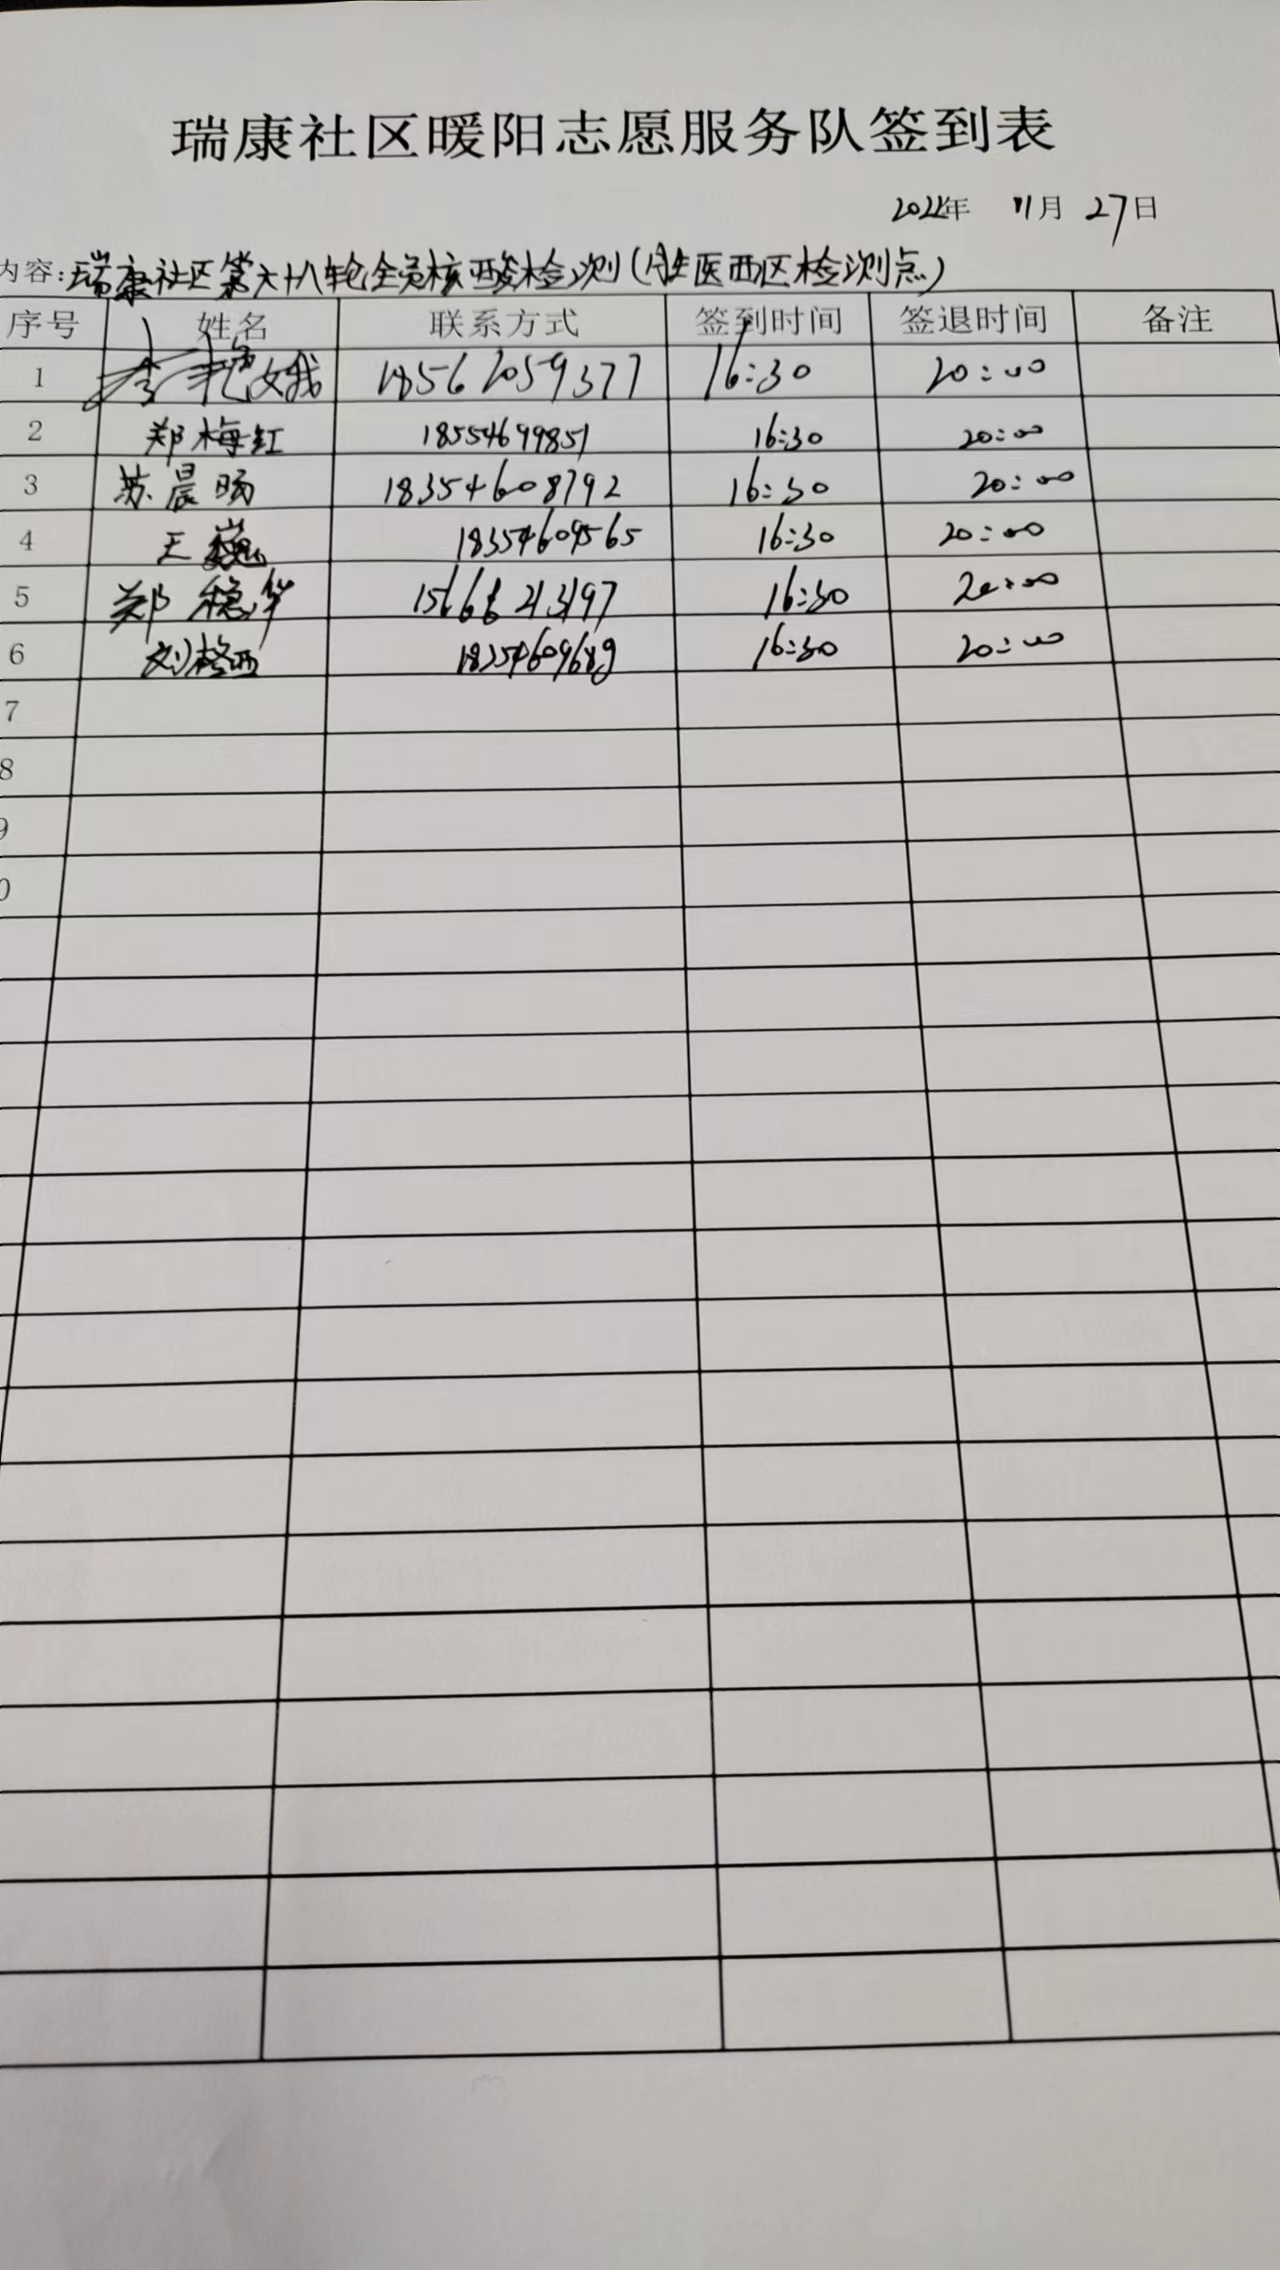 瑞康社区暖阳志愿服务队签到表
2022年 11月 27日
内容:瑞康社区第六十八轮全员核酸检测(胜医西区检测点)
序号 姓名 联系方式 签到时间 签退时间 备注
1 李艳娥 18562059377 16:30 20:00
2 郑梅红 18554699851 16:30 20:00
3 苏晨旸 18354608792 16:30 20:00
4 王巍 18354609565 16:30 20:00
5 郑稳华 16:30 20:00
6 刘格西 18354609689 16:30 20:00
7
8
9
0